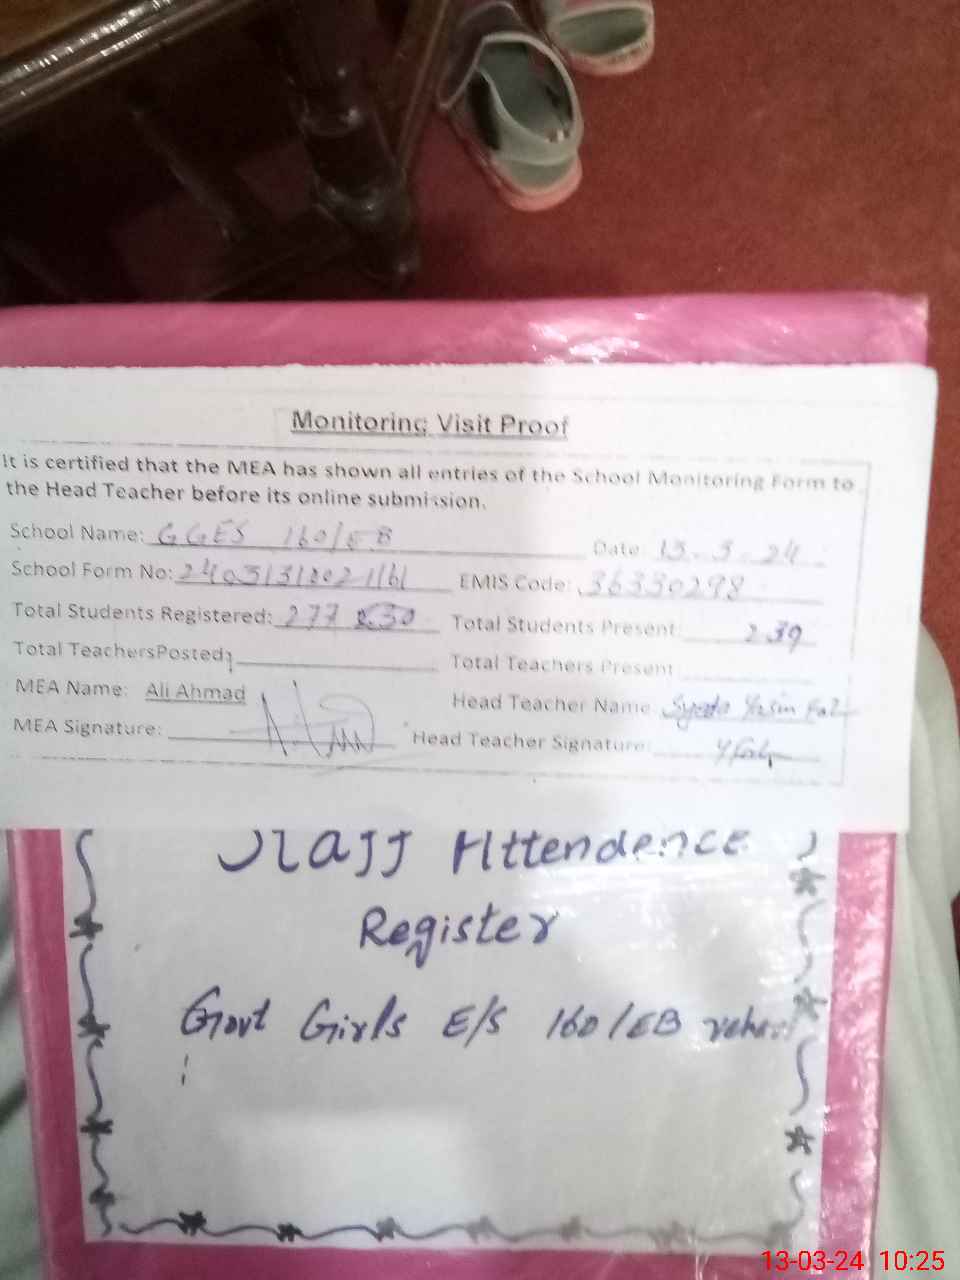 Monitoring Visit Proof
It is certified that the MEA has shown all entries of the School Monitoring Form to
the Head Teacher before its online submission.
School Name: GGES 160/EB Date: 13.3.24
School Form No: EMIS Code: 36330298
Total Students Registered: 277 Total Students Present: 239
Total TeachersPosted: Total Teachers Present
MEA Name: Ali Ahmad Head Teacher Name
MEA Signature: Head Teacher Signature:
Staff Attendence
Register
Govt Girls E/S 160/EB
13-03-24 10:25